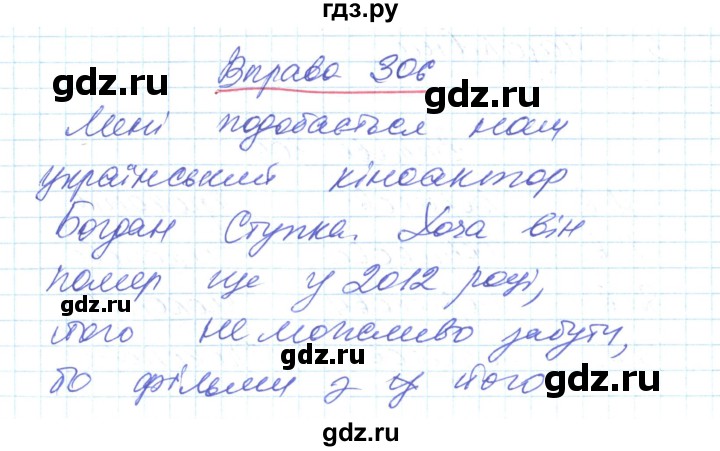 гдз.ру
Вправа 306
gdz.ru gdz.ru
Мені подобається наш
український кіноактор
gdz.ru gdz.ru
Богдан Ступка. Хоча він
помер ще у 2012 році,
gdz.ru
його неможливо забути,
gdz.ru
бо фільми з у його
gdz.ru gdz.ru
gdz.ru